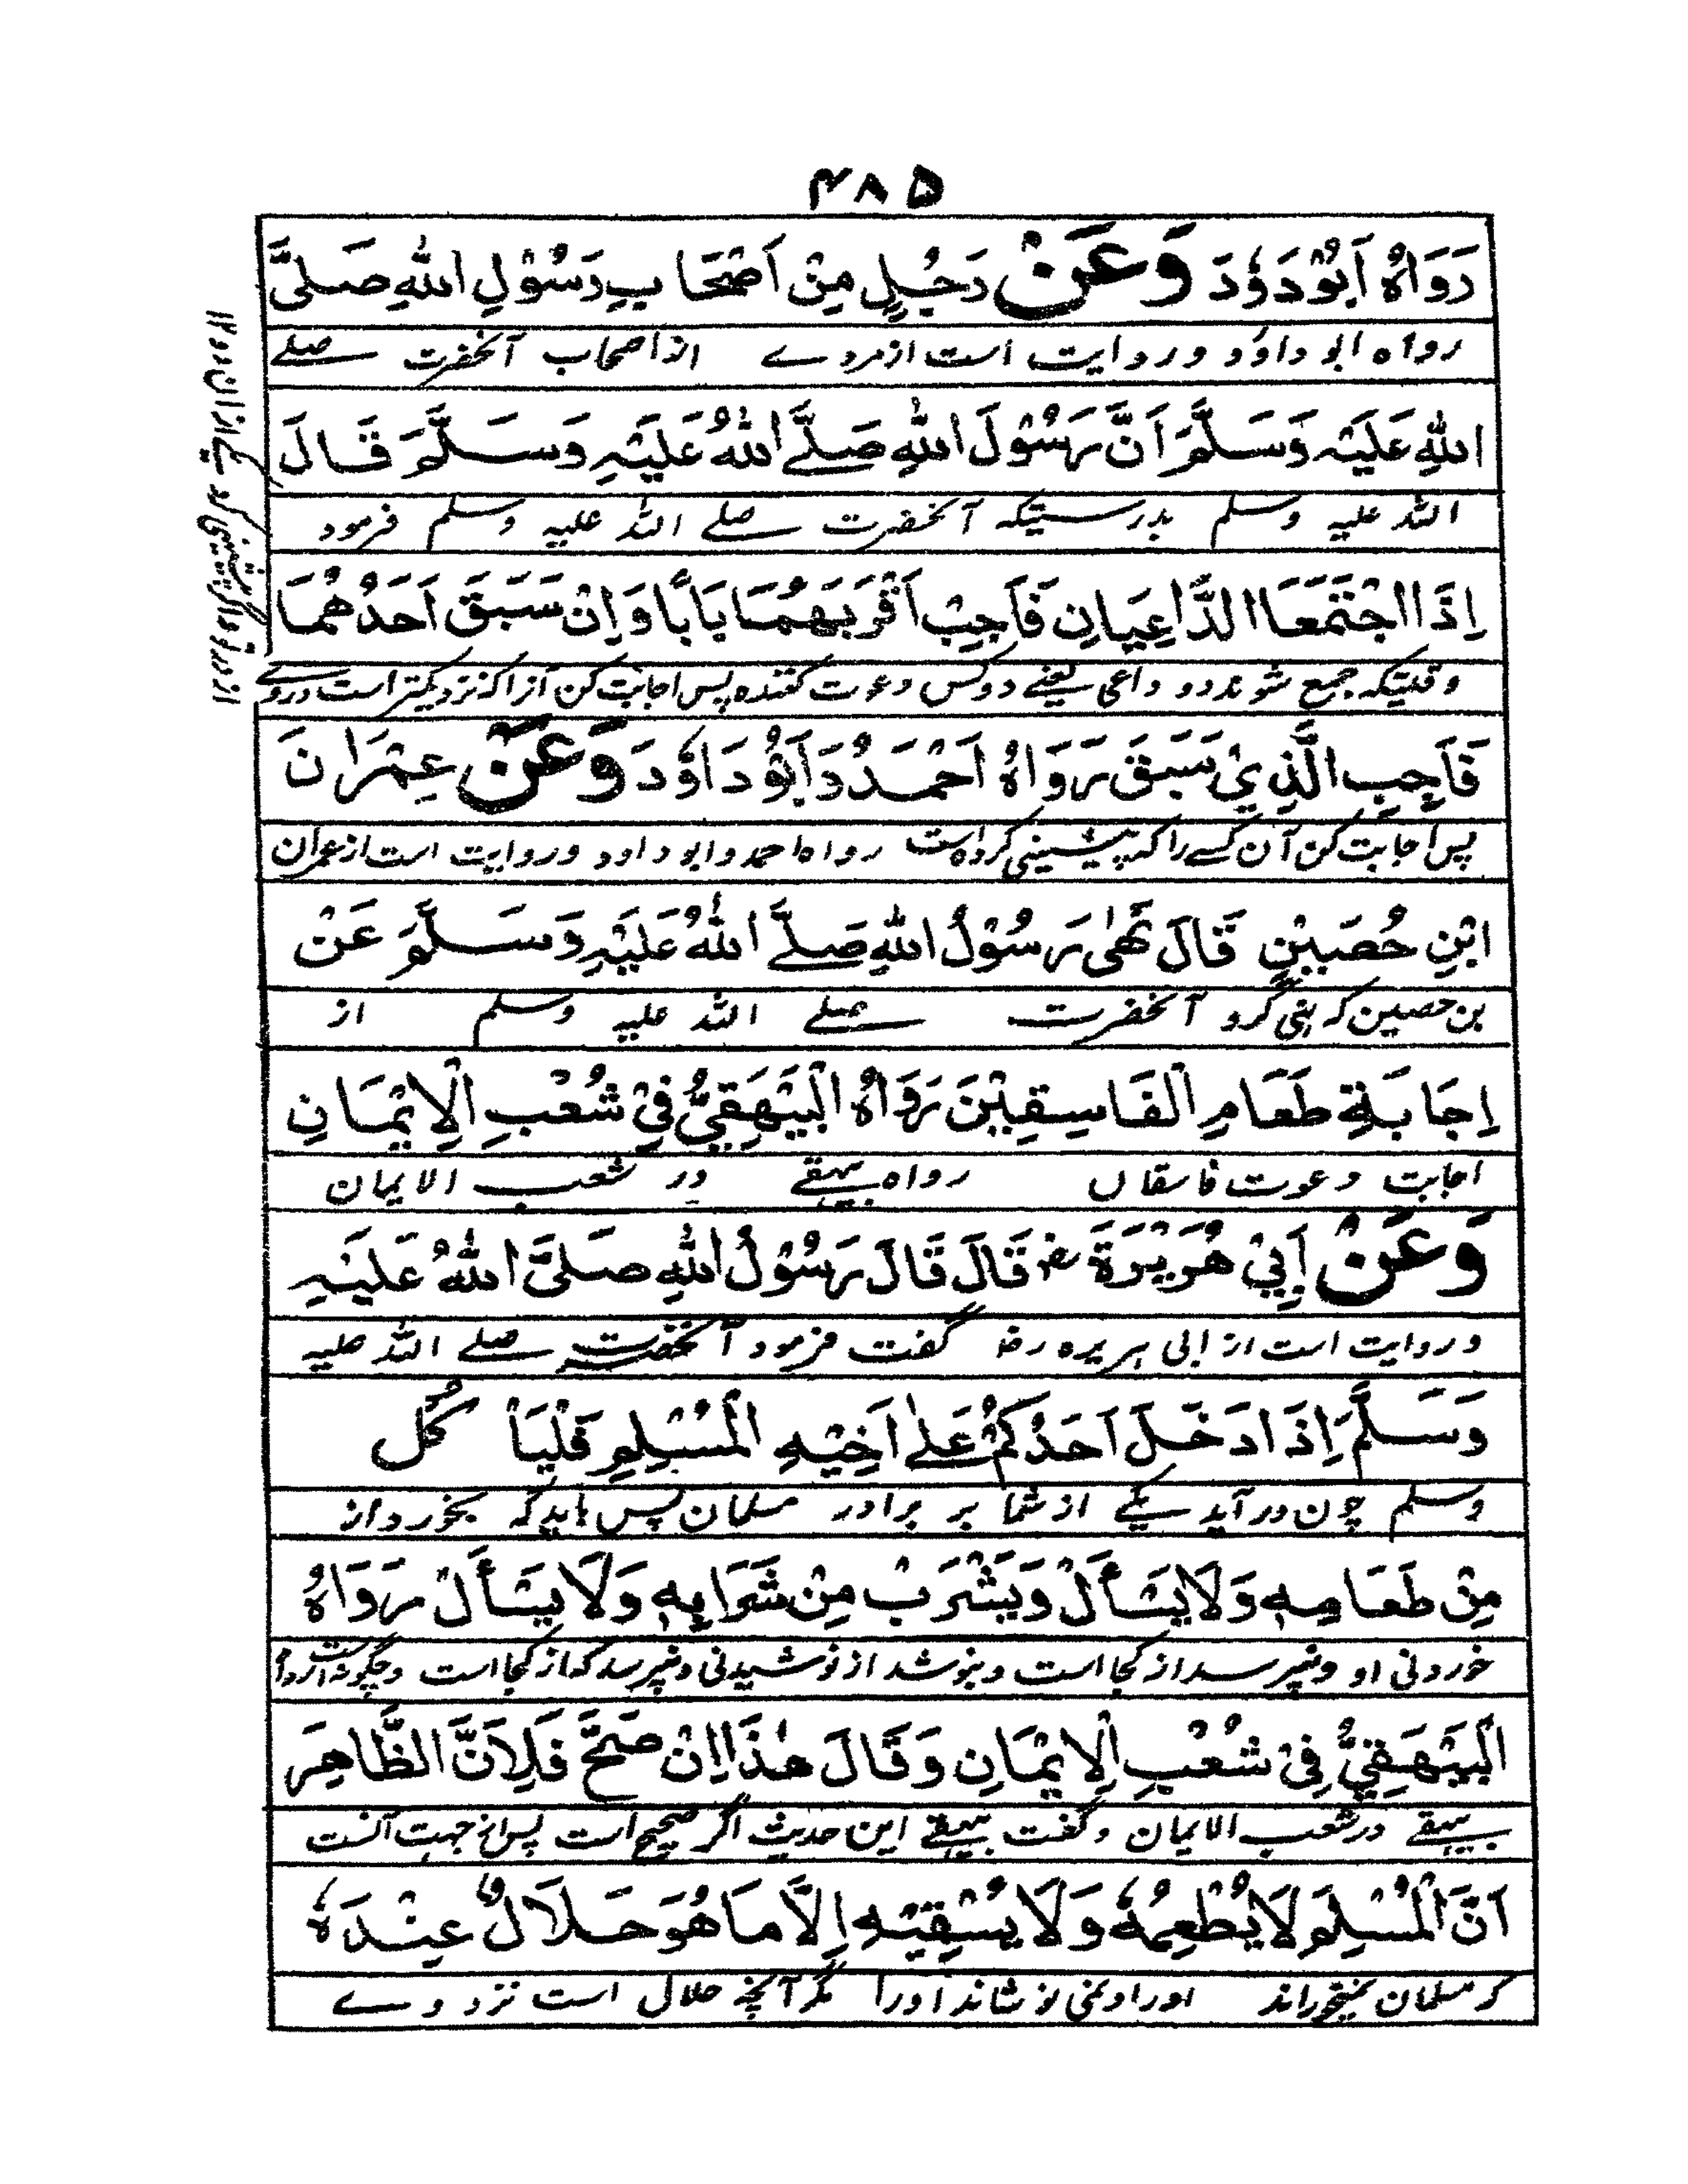 ۴۸۵
رَوَاهُ اَبُوْدَاؤدَ وَعَنْ رَجُلٍ مِنْ اَصْحَابِ رَسُوْلِ اللهِ صَلَّى
رواه ابو داود و روایت است از مردے از اصحاب آنحضرت صلے
اللهِ عَلَيْهِ وَسَلَّمَ اَنَّ رَسُوْلَ اللهِ صَلَّے اللهُ عَلَيْهِ وَسَلَّمَ قَالَ
الله علیه وسلم بدرستیکه آنحضرت صلے الله علیه وسلم فرمود
اِذَا اجْتَمَعَا الدَّاعِيَانِ فَاَجِبْ اَقْرَبَهُمَا بَابًا وَاِنْ سَبَقَ اَحَدُهُمَا
وقتیکه جمع شوند دو داعی یعنے دو کس دعوت کننده پس اجابت کن آنرا که نزدیکتر است در وے
فَاَجِبِ الَّذِيْ سَبَقَ رَوَاهُ اَحْمَدُ وَاَبُوْ دَاوٗدَ وَعَنْ عِمْرَانَ
پس اجابت کن آن کسے را که پیشینی کرده است رواه احمد و ابو داود و روایت است از عمران
ابْنِ حُصَيْنٍ قَالَ نَهٰى رَسُوْلُ اللهِ صَلَّے اللهُ عَلَيْهِ وَسَلَّمَ عَنْ
بن حصین که نهی کرد آنحضرت صلے الله علیه وسلم از
اِجَابَةِ طَعَامِ الْفَاسِقِيْنَ رَوَاهُ الْبَيْهَقِيُّ فِيْ شُعْبِ الْاِيْمَانِ
اجابت دعوت فاسقان رواه بیهقے در شعب الایمان
وَعَنْ اَبِيْ هُرَيْرَةَ رض قَالَ قَالَ رَسُوْلُ اللهِ صَلَّى اللهُ عَلَيْهِ
و روایت است از ابی هریره رض گفت فرمود آنحضرت صلے الله علیه
وَسَلَّمَ اِذَا دَخَلَ اَحَدُكُمْ عَلٰى اَخِيْهِ الْمُسْلِمِ فَلْيَاْكُل
وسلم چون در آید یکے از شما بر برادر مسلمان پس باید که بخورد از
مِنْ طَعَامِهٖ وَلَا يَسْأَلْ وَيَشْرَبْ مِنْ شَرَابِهٖ وَلَا يَسْأَلْ رَوَاهُ
خوردنی او و نپرسد از کجا است و بنوشد از نوشیدنی و نپرسد که از کجا است و چگونه است
الْبَيْهَقِيُّ فِيْ شُعْبِ الْاِيْمَانِ وَقَالَ هٰذَا اِنْ صَحَّ فَلِاَنَّ الظَّاهِرَ
بیهقے در شعب الایمان و گفت بیهقے این حدیث اگر صحیح است پس از جهت آنست
اَنَّ الْمُسْلِمَ لَا يُطْعِمُهٗ وَلَا يُسْقِيْهِ اِلَّا مَا هُوَ حَلَالٌ عِنْدَهٗ
که مسلمان نمیخوراند اورا و نمی نوشاند اورا مگر آنچه حلال است نزد وے